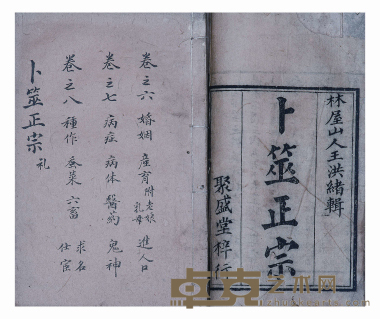 林屋山人王洪緒輯
卜筮正宗
聚盛堂梓行
卷之六 婚姻 產育 附老娘 乳母 進人口
卷之七 病症 病体 醫药 鬼神
卷之八 種作 蚕菜 六畜 求名 仕宦
卜筮正宗 礼
卓克艺术网